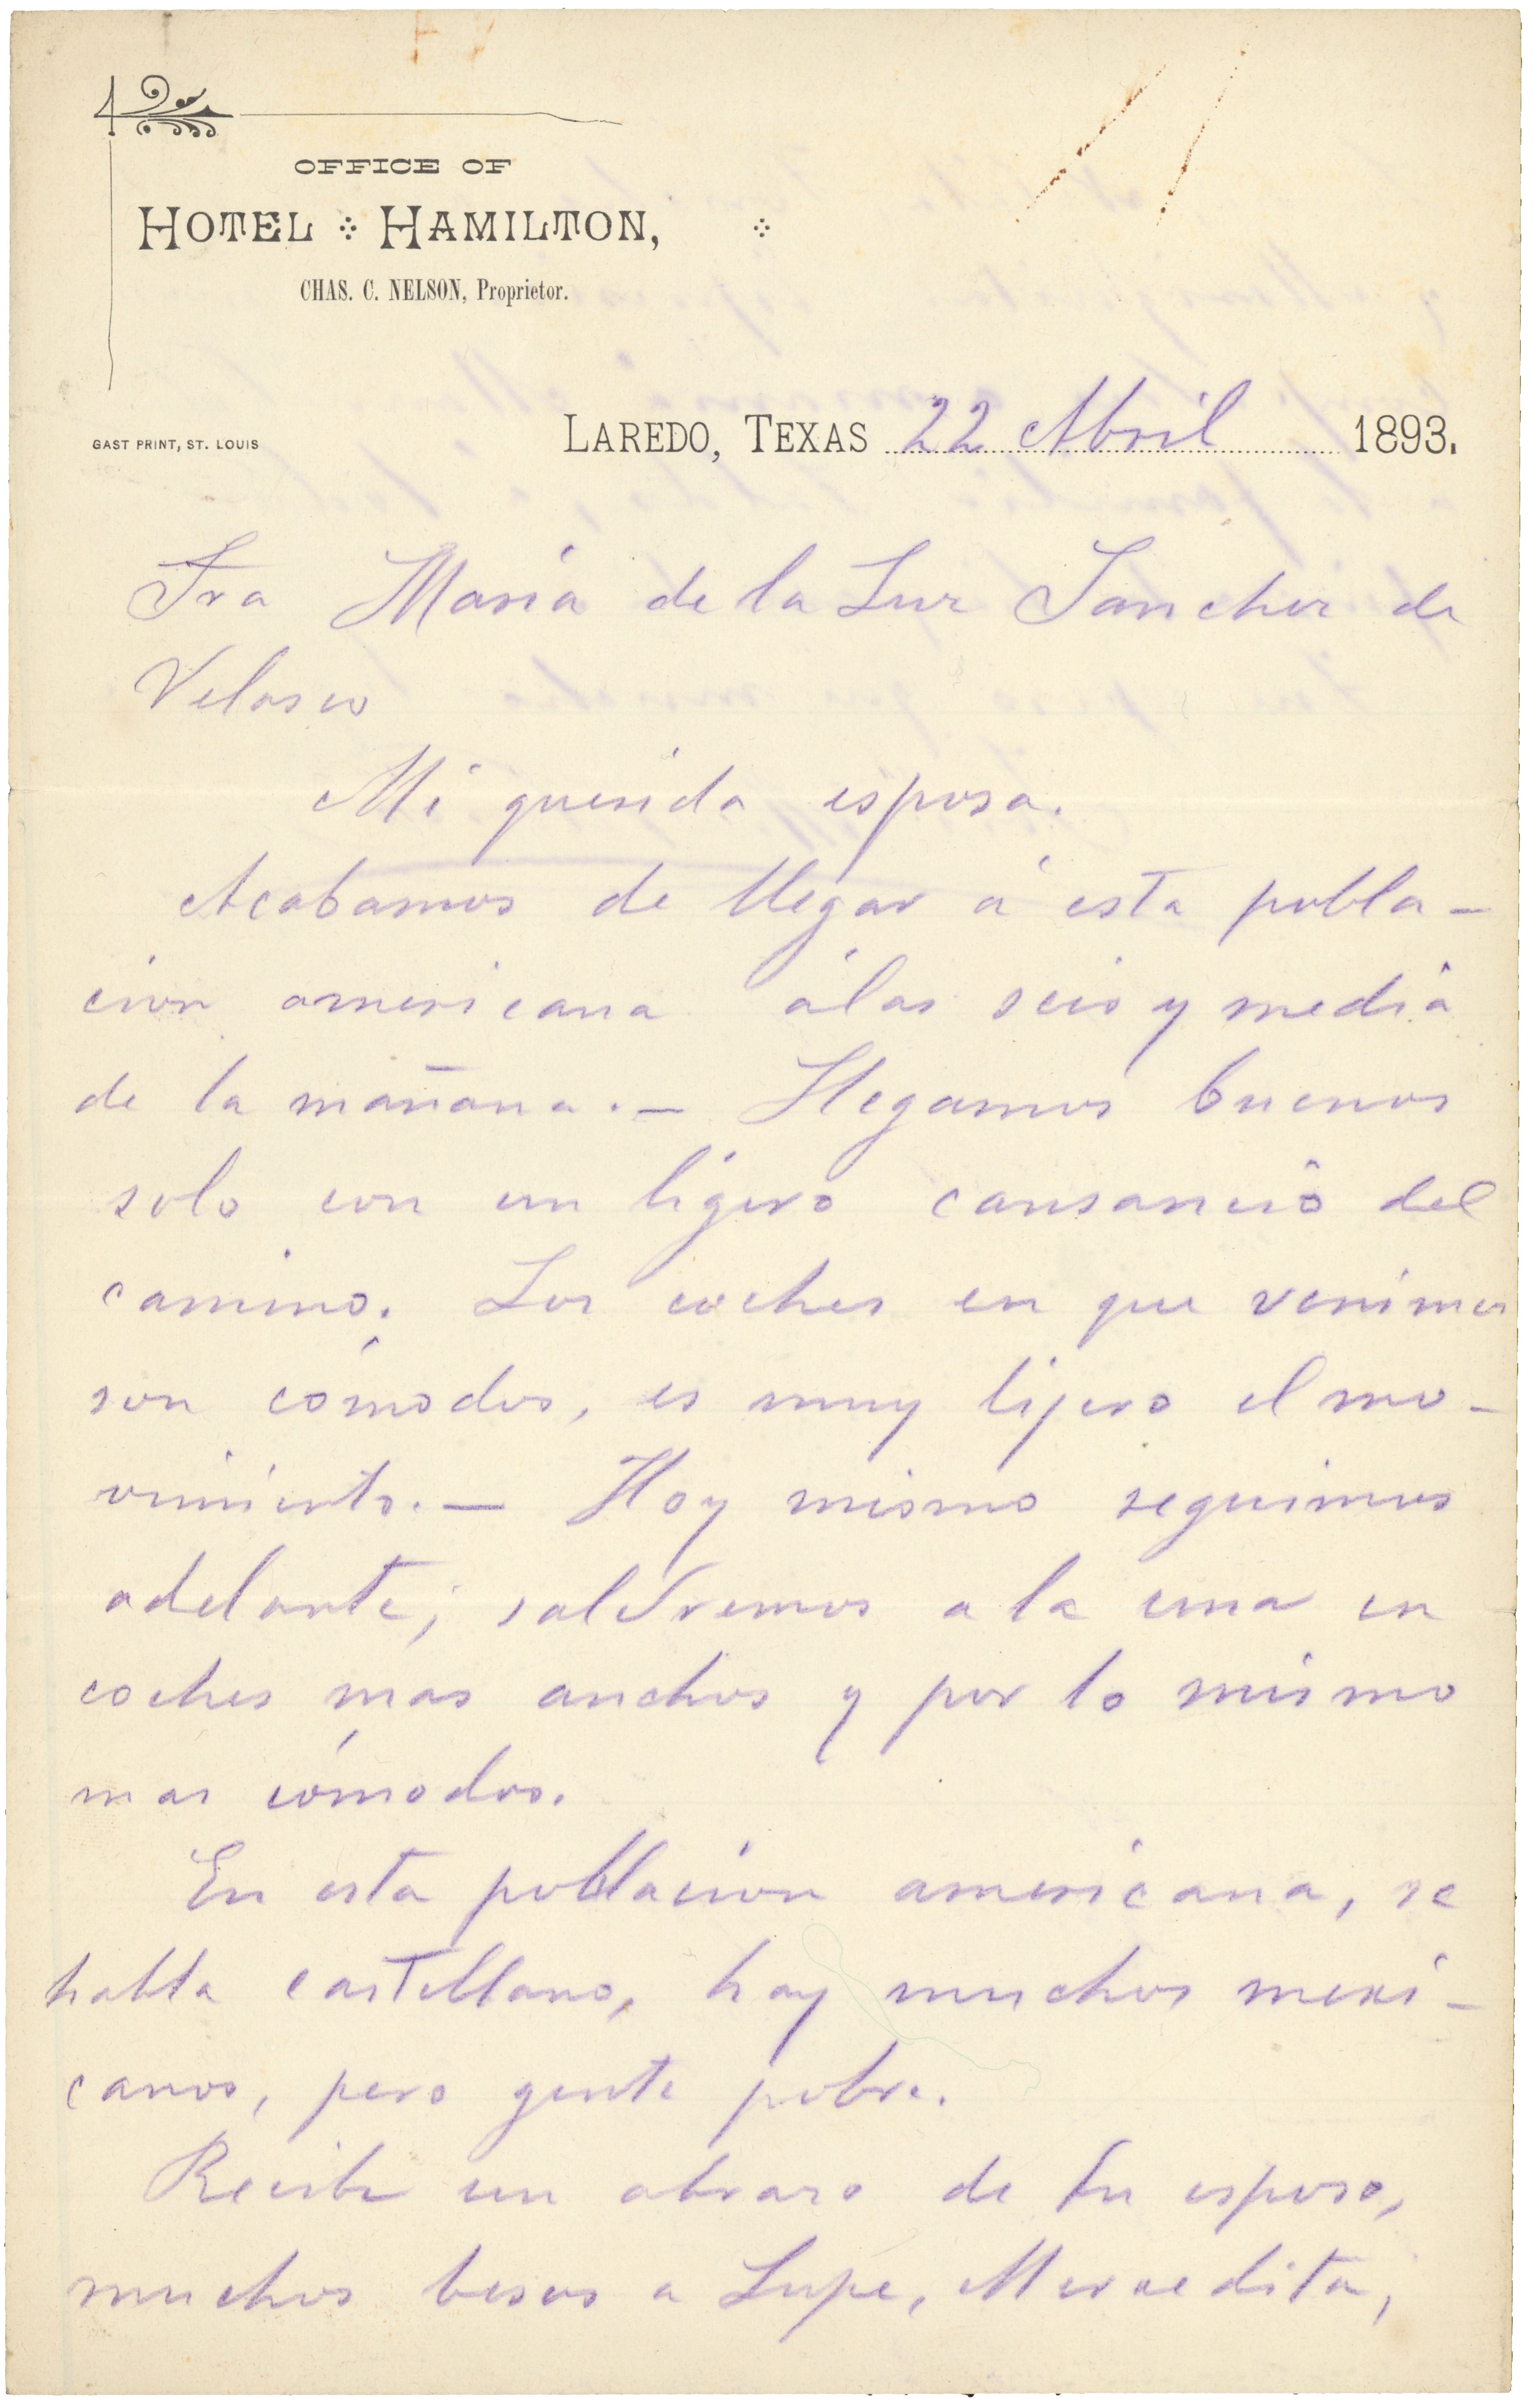 OFFICE OF
HOTEL HAMILTON,
CHAS. C. NELSON, Proprietor.
GAST PRINT, ST. LOUIS
LAREDO, TEXAS 22 Abril 1893.
Sra María de la Luz Sanchez de
Velasco
Mi querida esposa.
Acabamos de llegar á esta pobla-
cion americana á las seis y media
de la mañana.— Llegamos buenos
solo con un ligero cansancio del
camino. Los coches en que venimos
son cómodos, es muy lijero el mo-
vimiento.— Hoy mismo seguimos
adelante; saldremos a la una en
coches mas anchos y por lo mismo
mas cómodos.
En esta poblacion americana, se
habla castellano, hay muchos mexi-
canos, pero gente pobre.
Recibe un abrazo de tu esposo,
muchos besos a Lupe, Mercedita,